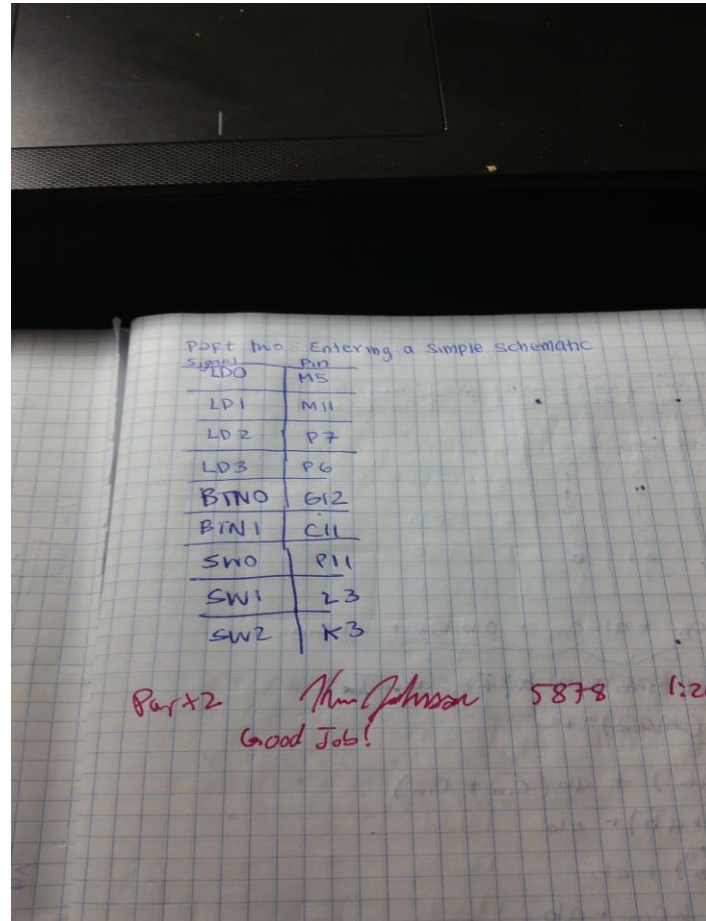 Part two: Entering a simple schematic
Signal Pin
LD0 M5
LD1 M11
LD2 P7
LD3 P6
BTN0 G12
BTN1 C11
SW0 P11
SW1 L3
SW2 K3
Part 2 Johnson 5878 1:2
Good Job!